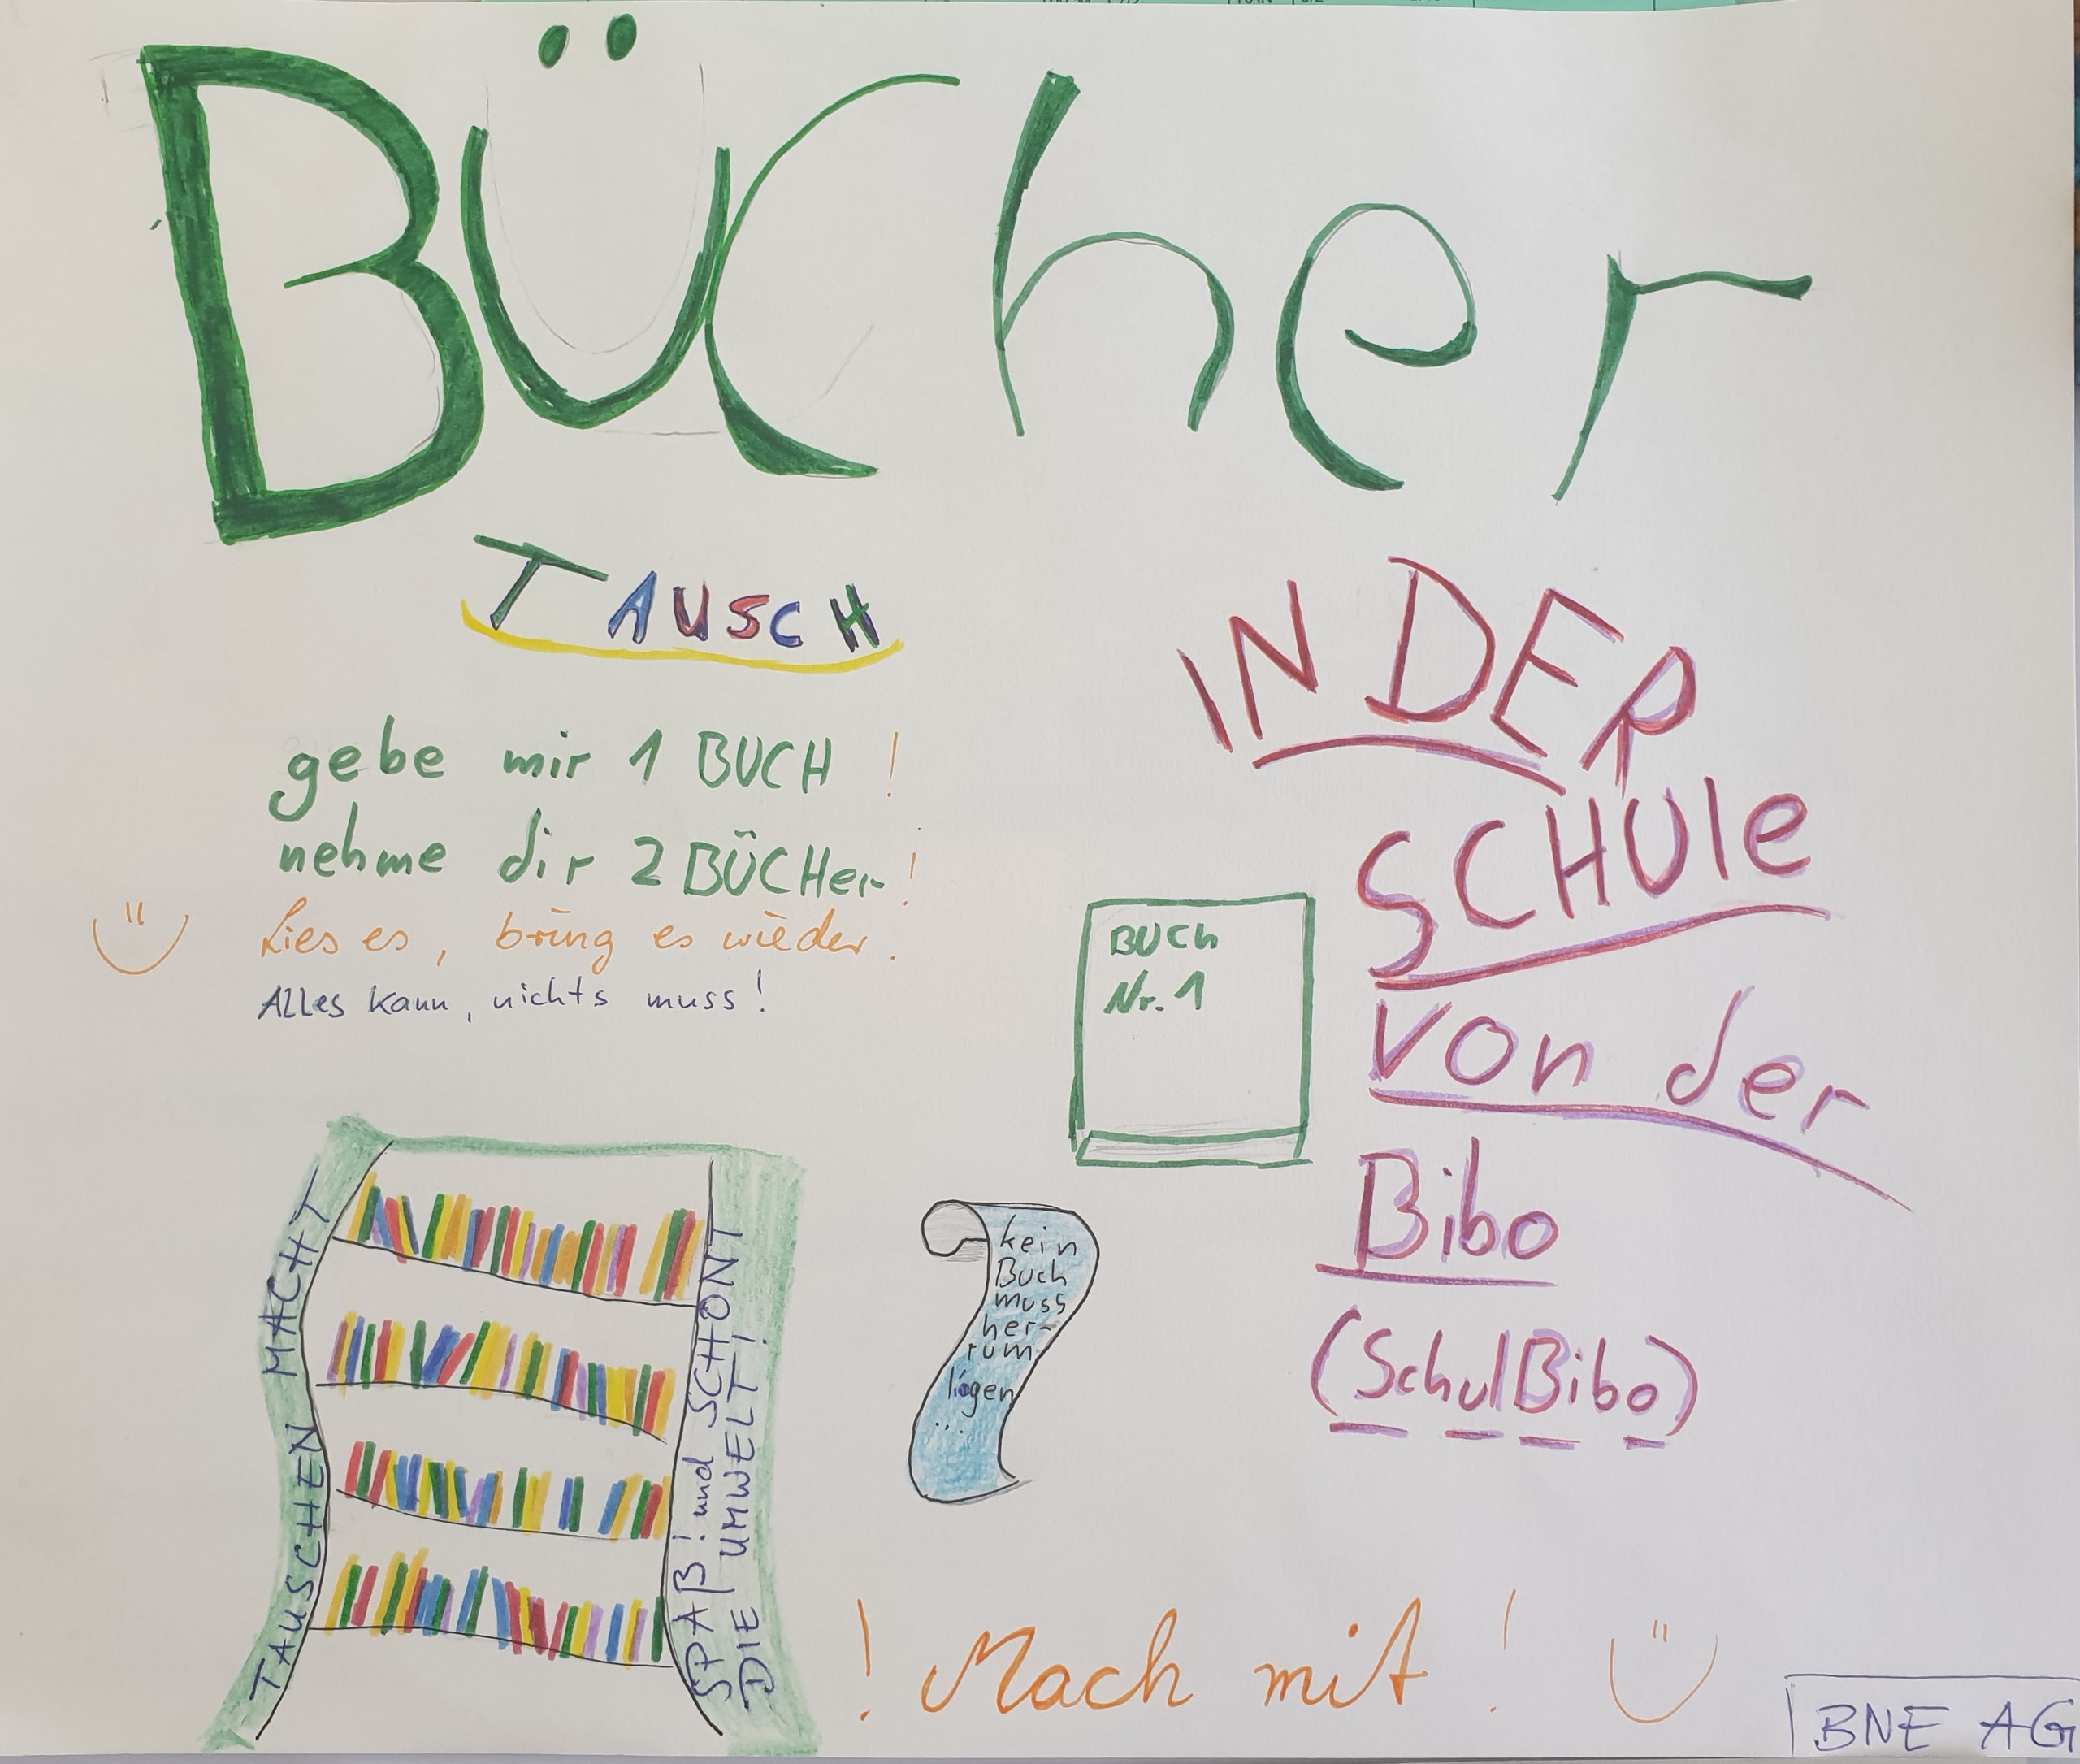 Bücher
TAUSCH
gebe mir 1 BUCH !
nehme dir 2 BÜCHer !
Lies es, bring es wieder.
Alles kann, nichts muss!
IN DER
SCHUle
von der
Bibo
(SchulBibo)
BUCh
Nr. 1
TAUSCHEN MACHT
SPAß! und SCHONT
DIE UMWELT!
kein
Buch
muss
her-
rum
liegen
...
! Mach mit !
BNE AG